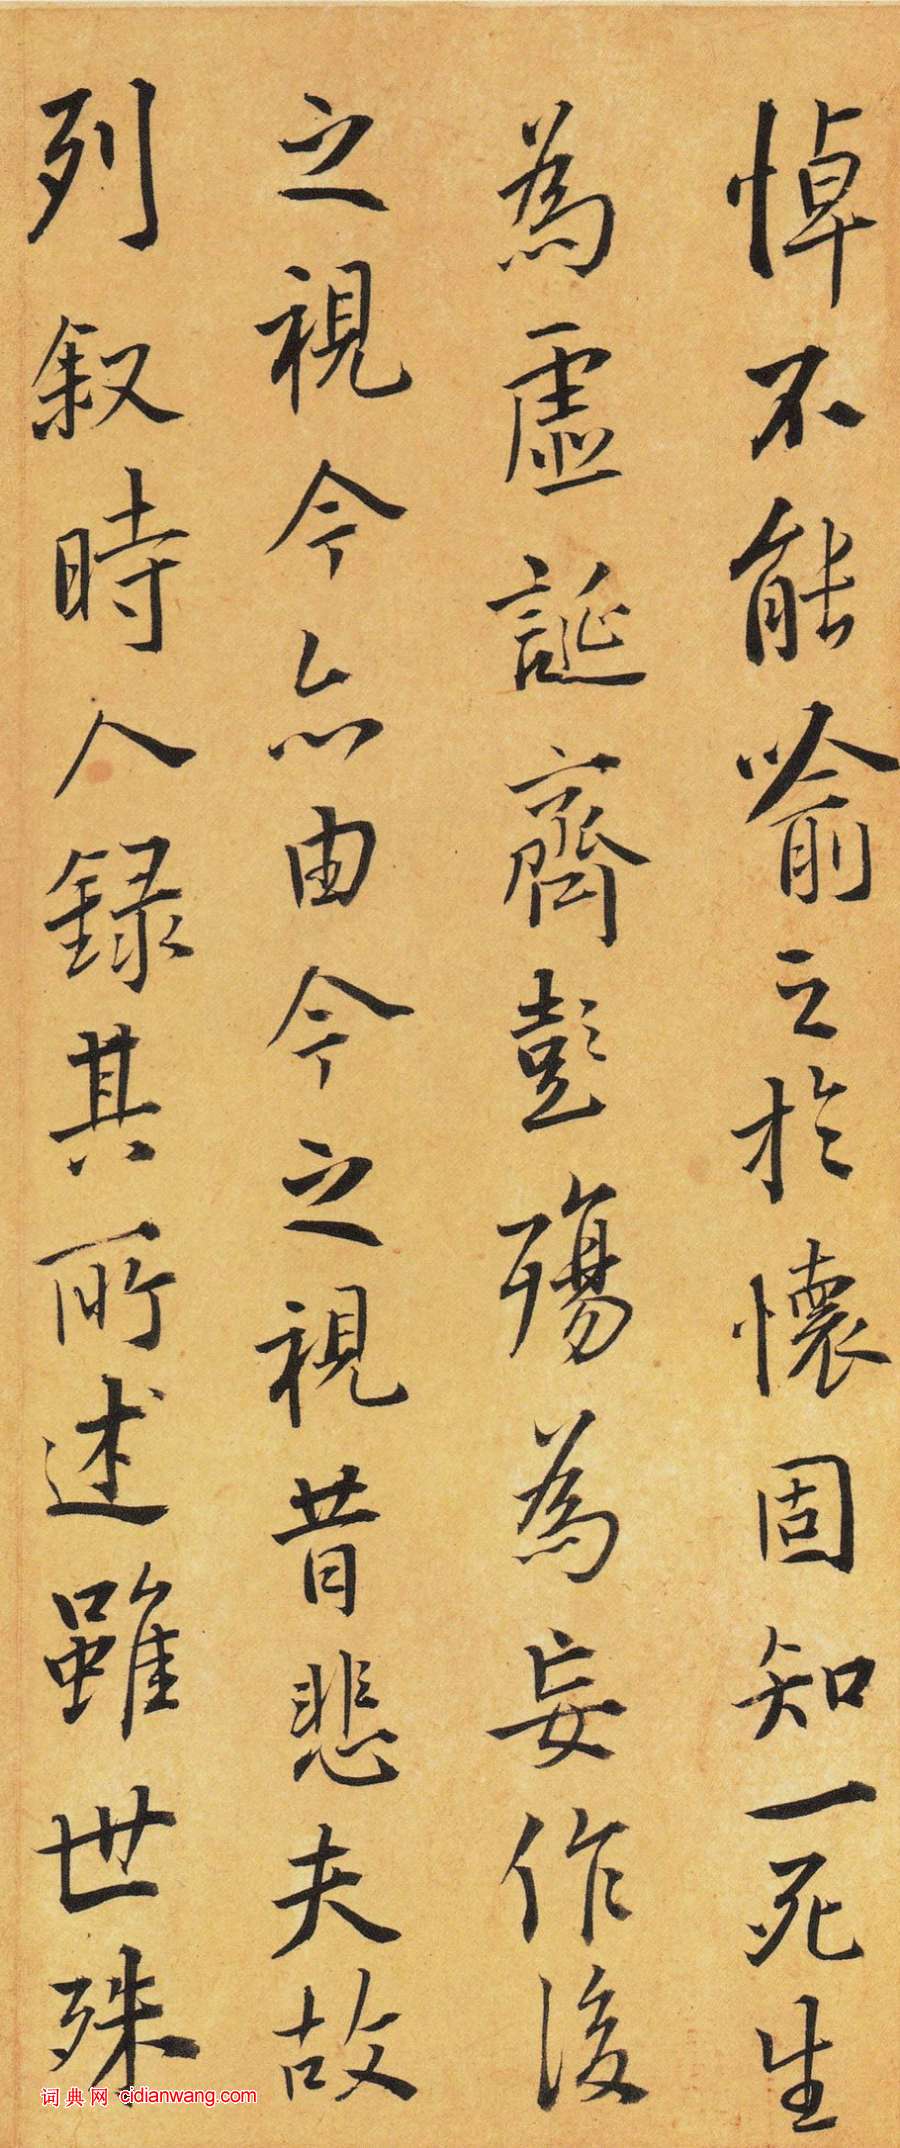 悼不能喻之於懷固知一死生
為虛誕齊彭殤為妄作後
之視今亦由今之視昔悲夫故
列叙時人錄其所述雖世殊
词典网 cidianwang.com